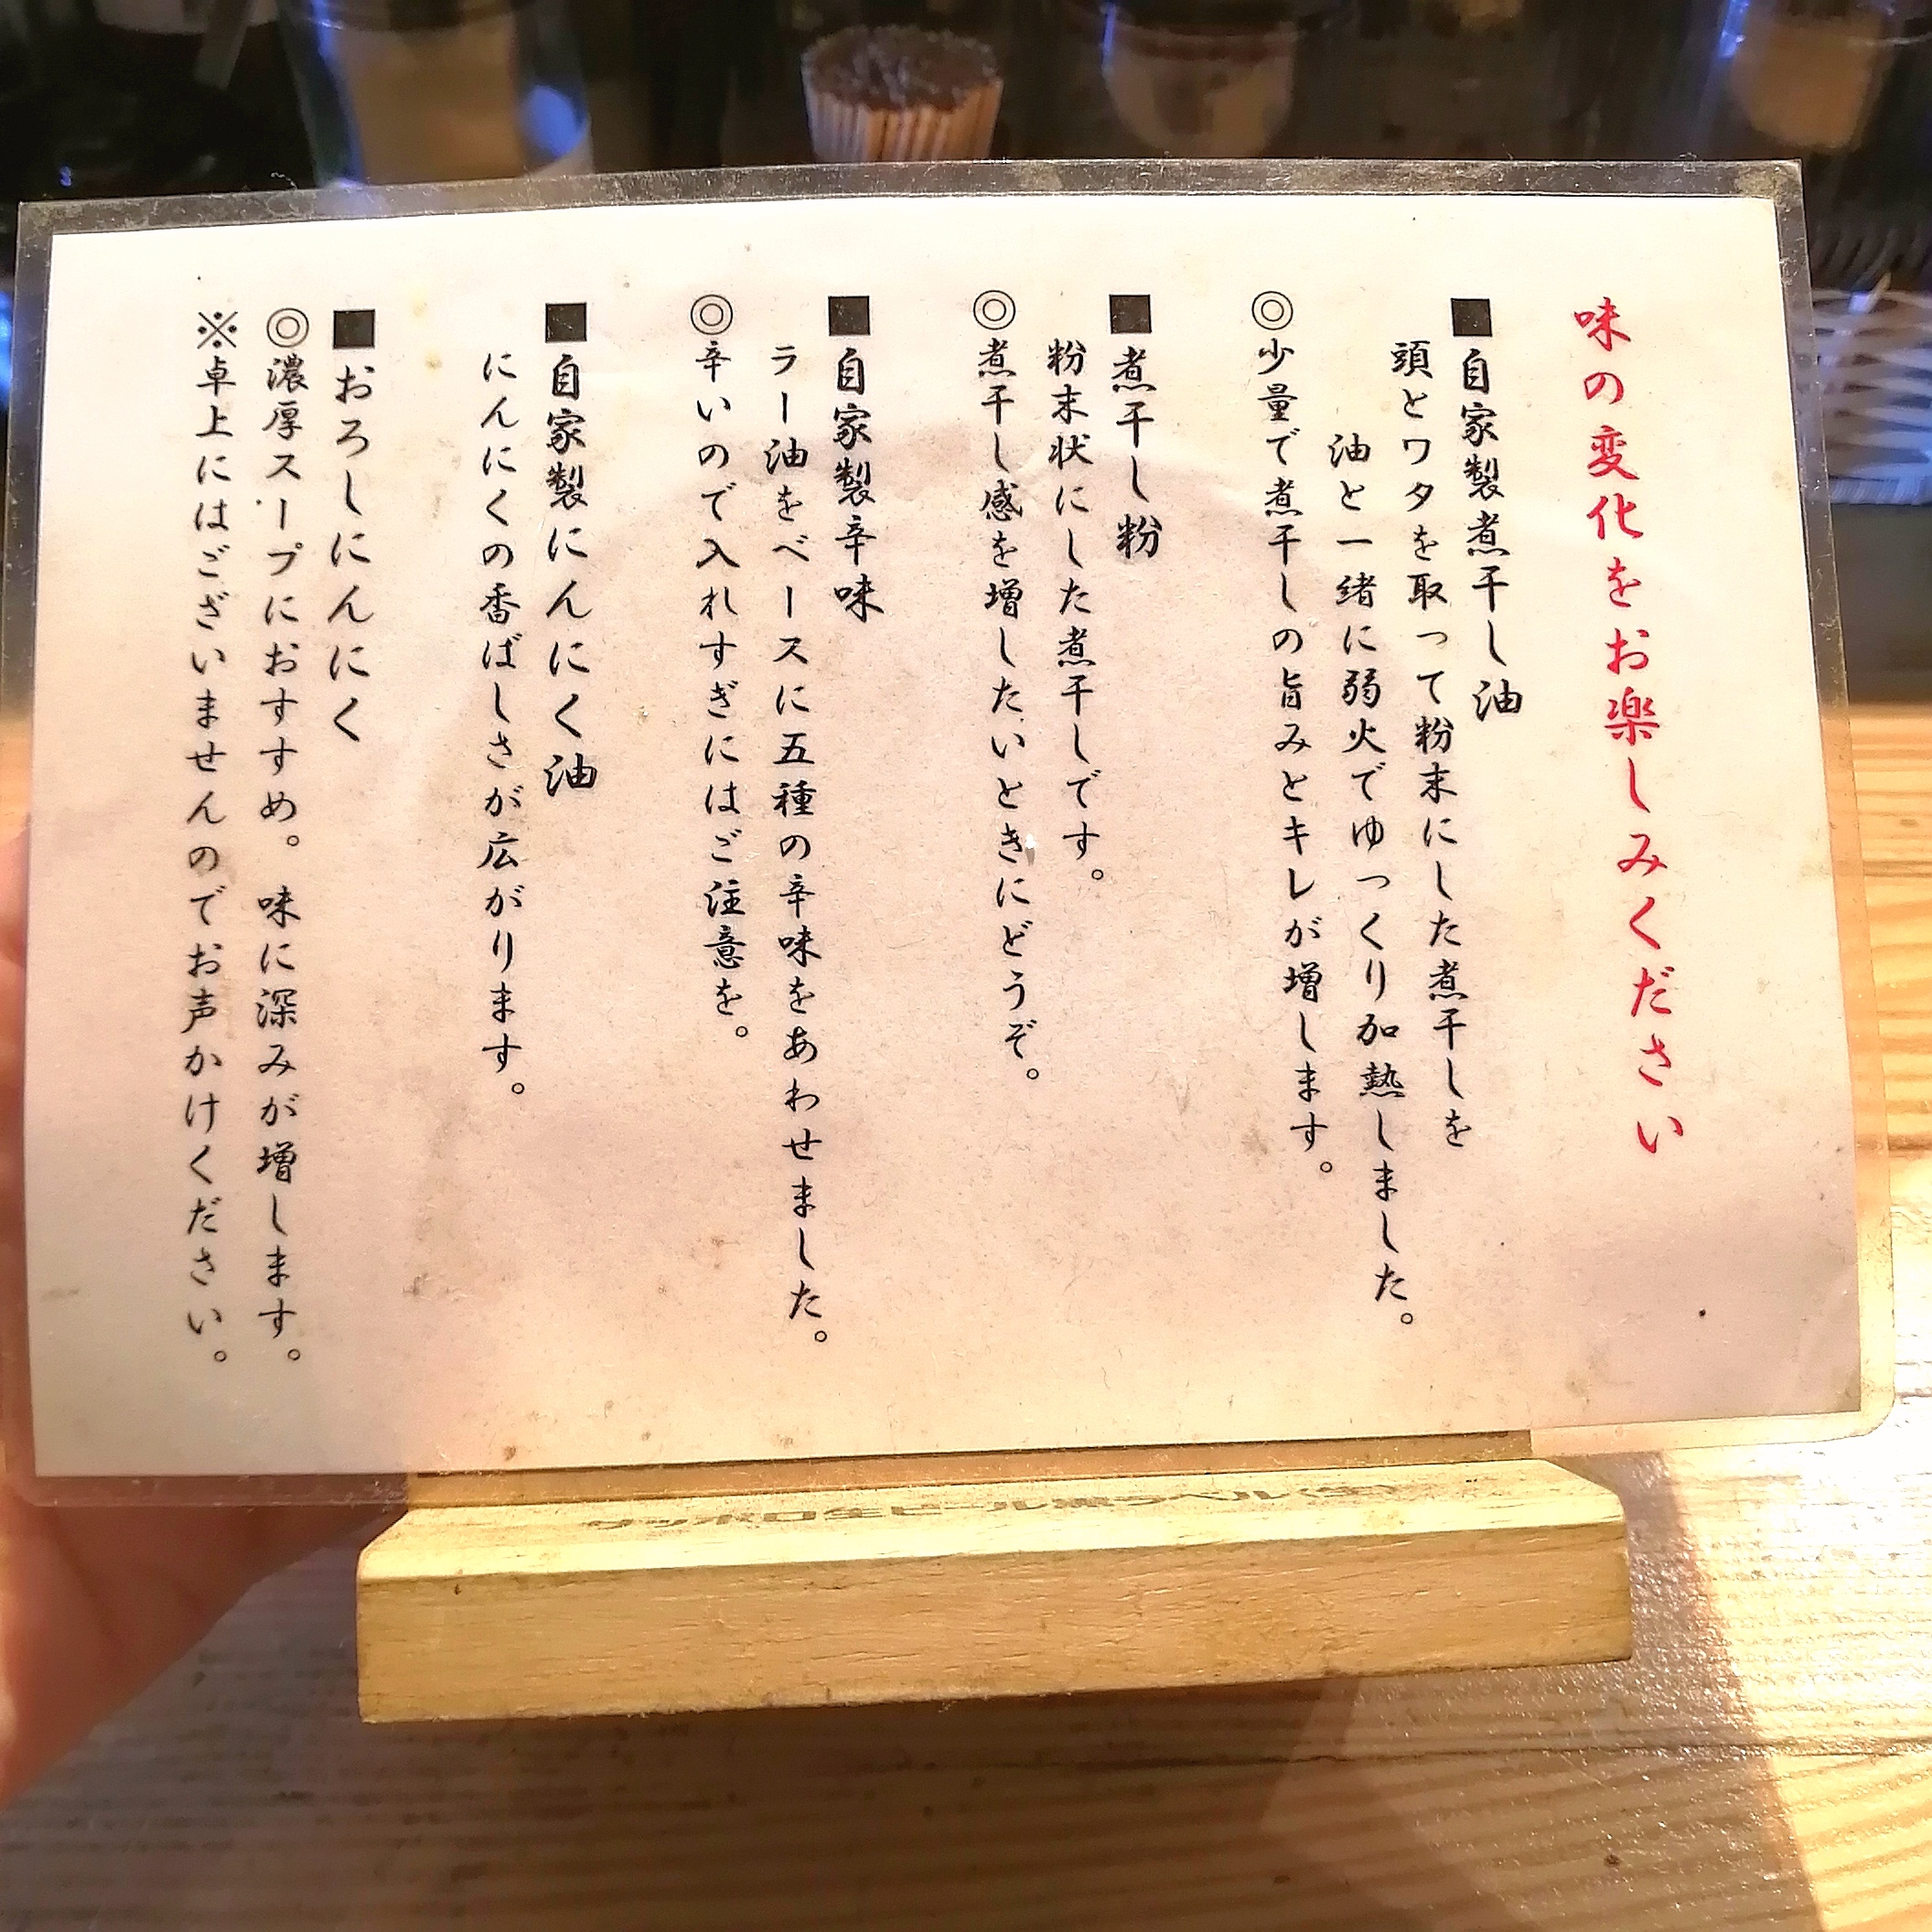 味の変化をお楽しみください
■自家製煮干し油
頭とワタを取って粉末にした煮干しを
油と一緒に弱火でゆっくり加熱しました。
◎少量で煮干しの旨みとキレが増します。
■煮干し粉
粉末状にした煮干しです。
◎煮干し感を増したいときにどうぞ。
■自家製辛味
ラー油をベースに五種の辛味をあわせました。
◎辛いので入れすぎにはご注意を。
■自家製にんにく油
にんにくの香ばしさが広がります。
■おろしにんにく
◎濃厚スープにおすすめ。味に深みが増します。
※卓上にはございませんのでお声かけください。
サッポロ生ビール黒ラベル(生)